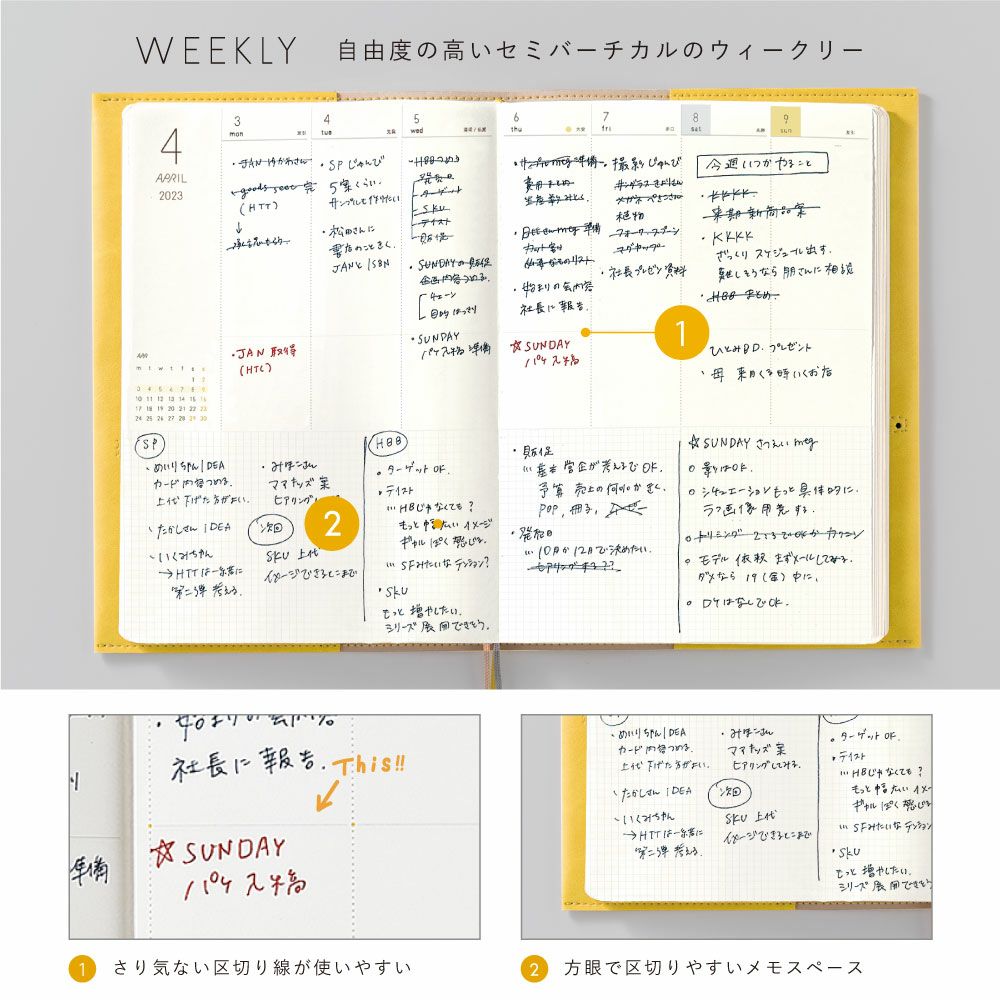 WEEKLY 自由度の高いセミバーチカルのウィークリー
4
APRIL
2023
3
mon
友引
4
tue
先負
5
wed
6
thu
大安
7
fri
赤口
8
sat
先勝
9
sun
友引
・JAN ゆかわさん
・goods seet 完
(HTT)
↓
・JAN 取得
(HTL)
・SPじゅんび
5案くらい。
サンプルも作りたい
・松田さんに
書店のこときく。
JANとISBN
・HBBつめる
発売日
ターゲット
SKU
テイスト
販促
・SUNDAYの販促
企画内容つめる。
チェーン
目的はっきり
・SUNDAY
パケ元稿 準備
・サンプルmtg 準備
費用まとめ
・始まりの会内容
社長に報告。
☆SUNDAY
パケ元稿
・撮影じゅんび
植物
フォーク、スプーン
マグカップ
・社長プレゼン資料
今週いつかやること
・KKKK
来期新商品案
・KKKK
ざっくりスケジュール出す。
難しそうなら朋さんに相談
・HBBまとめ
ひとみBD. プレゼント
、母 来月くる時いくお店
APR
m t w t f s s
1 2
3 4 5 6 7 8 9
10 11 12 13 14 15 16
17 18 19 20 21 22 23
24 25 26 27 28 29 30
SP
・めいりちゃんIDEA
カード内容つめる。
上代下げた方がよい。
・たかしさんIDEA
・いくみちゃん
→HTTは一緒に
第二弾考える.
・みほこさん
ママキッズ案
ヒアリング
次回
SKU 上代
イメージできるとこまで
HBB
・ターゲットOK.
・テイスト
…HBじゃなくても?
もっと幅広いイメージ
ギャルぽく感じる.
…SFみたいなテンション?
・SKU
もっと増やしたい.
シリーズ展開できそう.
・販促
…基本営企が考えるでOK.
予算 売上の何%かきく.
POP, 冊子,
・発売日
…10月か12月で決めたい.
ヒアリングする??
☆SUNDAYさつえいmtg
○ 香りはOK.
○ シチュエーションもっと具体的に.
ラフ画像用意する.
○ トリミング
○ モデル依頼 まずメールしてみる.
ダメなら19(金)中に.
○ ロケはなしでOK.
1
2
・始まりの会内容
社長に報告.
This!!
準備
☆SUNDAY
パケ元稿
・めいりちゃんIDEA
カード内容つめる.
上代下げた方がよい.
・たかしさんIDEA
・いくみちゃん
→HTTは一緒に
第二弾考える.
・みほこさん
ママキッズ案
ヒアリングしてみる.
次回
SKU 上代
イメージできるとこまで
・ターゲットOK.
・テイスト
…HBじゃなくても?
もっと幅広いイメー
ギャルぽく感じる
…SFみたいなテンション
・SKU
もっと増やしたい.
シリーズ展開できそう
1 さり気ない区切り線が使いやすい
2 方眼で区切りやすいメモスペース